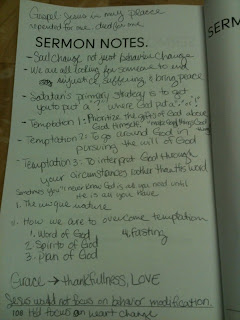 Gospel: Jesus in my place
upended for me. died for me
SERMON NOTES.
SERM
- Soul change not just behavior change
- We are all looking for someone to end
injustice, suffering & bring peace
- Satan's primary strategy is to get
you to put a "?" where God put a "."
- Temptation 1: Prioritize the gifts of God above
God Himself.
- Temptation 2: To go around God in
pursuing the will of God
- Temptation 3: To interpret God through
your circumstances rather than His word
Sometimes you'll never know God is all you need until
He is all you have
1. The unique nature
2. How we are to overcome temptation
1. Word of God
4. Fasting
2. Spirit of God
3. Plan of God
Grace → thankfullness, LOVE
Jesus would not focus on behavior modification.
108 His focus on want change